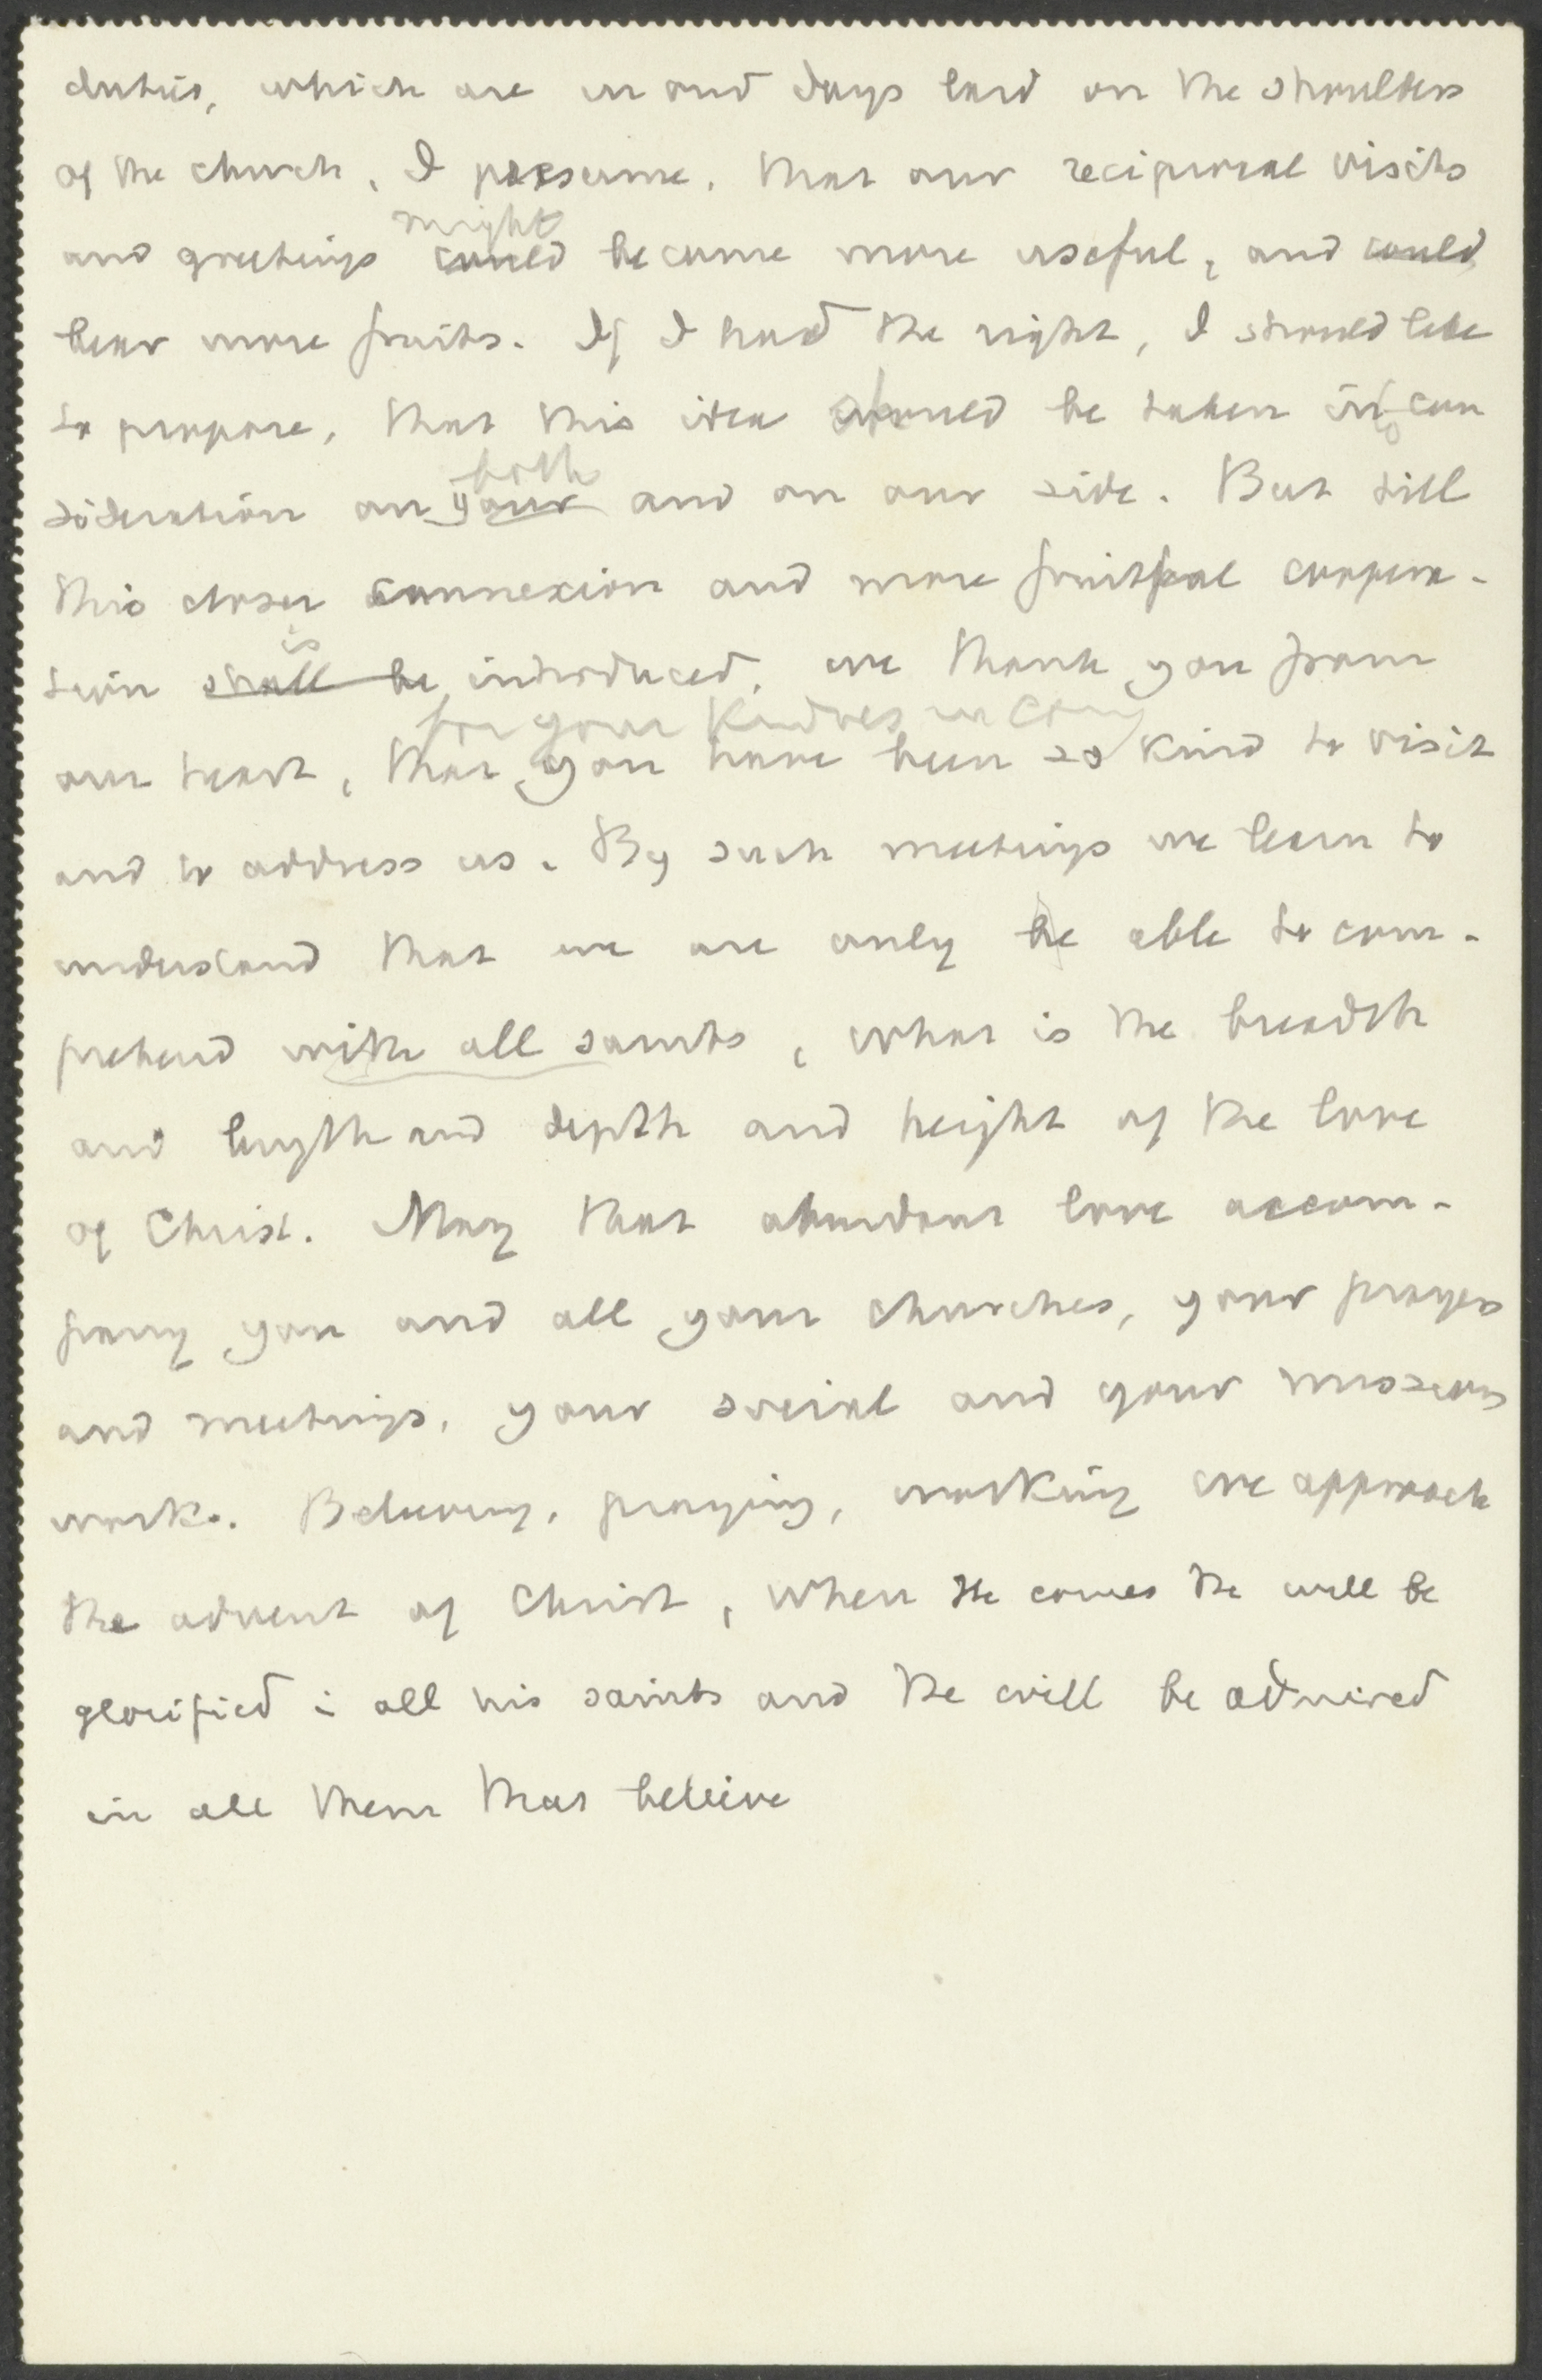 duties, which are in our days laid on the shoulders
of the church, I presume, that our reciprocal visits
might
and greetings could become more useful, and could
bear more fruits. If I had the right, I should like
to propose, that this idea should be taken into con
both
sideration on your and on our side. But till
this closer connexion and more fruitful coopera-
is
tion shall be introduced, we thank you from
for your kindnes in
our heart, that you have been so kind to visit
and to address us. By such meetings we learn to
understand that we are only be able to com-
prehend with all saints, what is the breadth
and length and depth and height of the love
of Christ. May that abundant love accom-
pany you and all your churches, your prayers
and meetings, your social and your missions
work. Believing, praying, working we approach
the advent of Christ, when He comes He will be
glorified i all his saints and He will be admired
in all them that believe